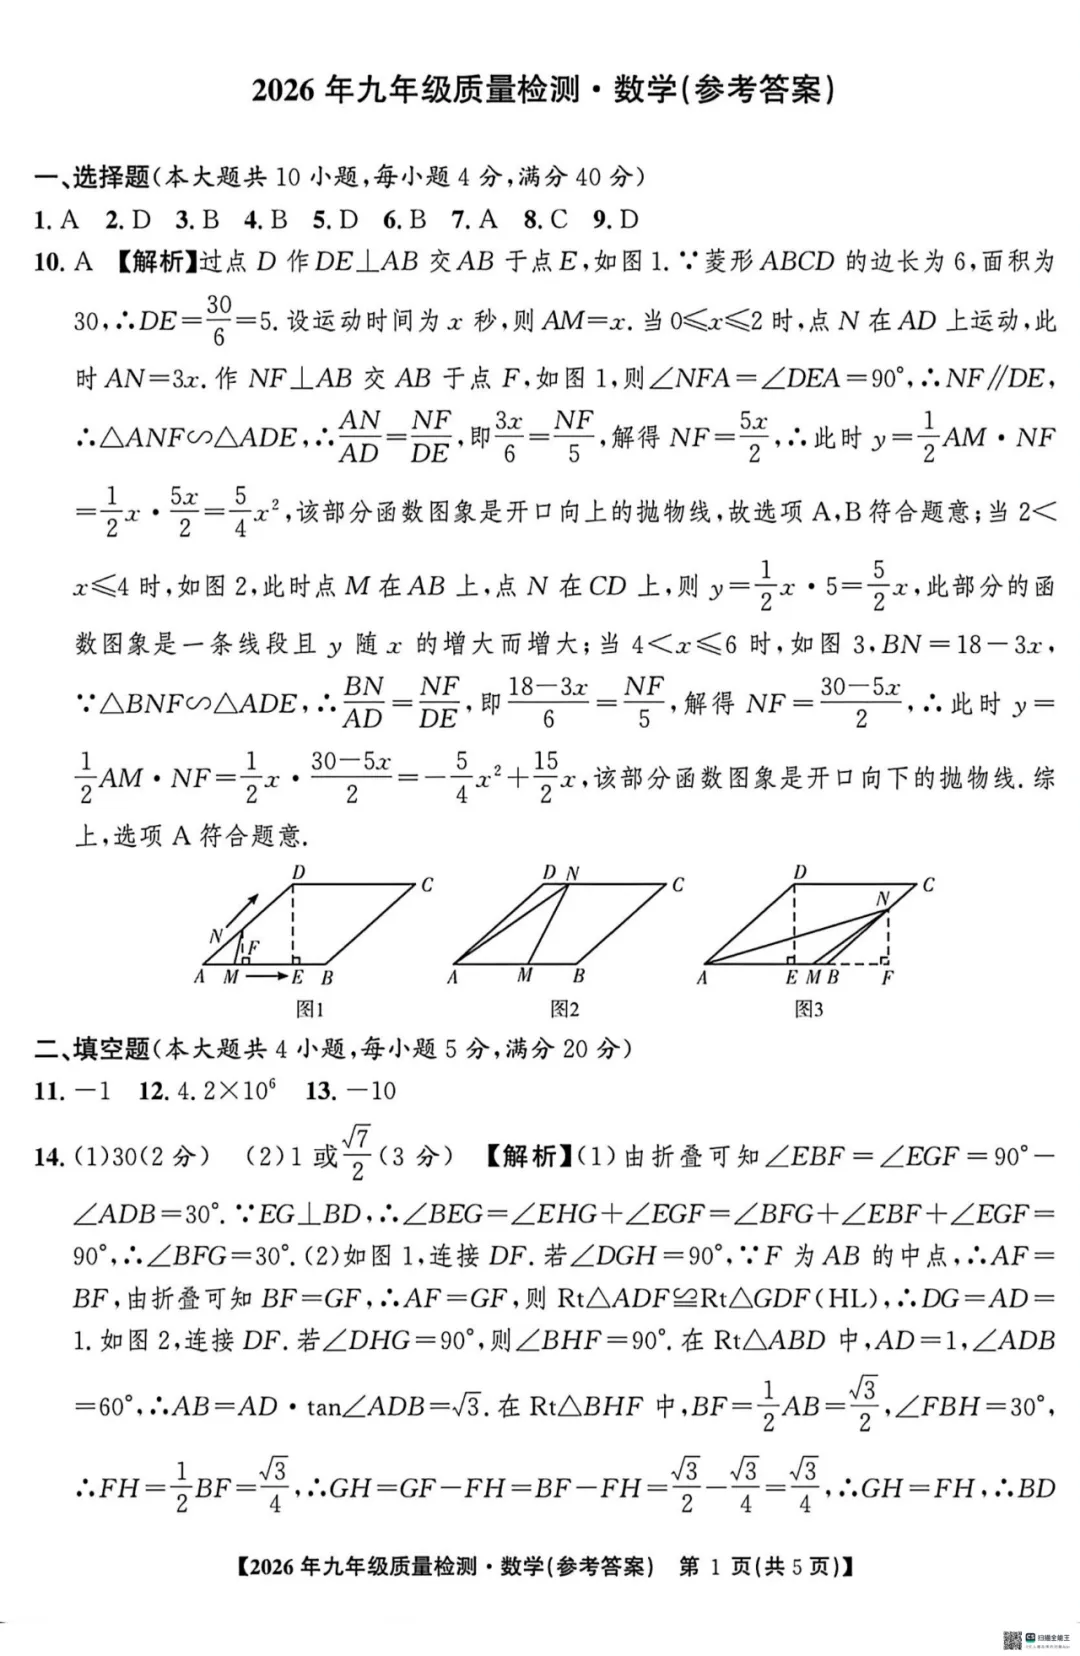 2026 年九年级质量检测·数学(参考答案)
一、选择题(本大题共 10 小题,每小题 4 分,满分 40 分)
1. A 2. D 3. B 4. B 5. D 6. B 7. A 8. C 9. D
10. A 【解析】过点 D 作 DE⊥AB 交 AB 于点 E,如图 1. ∵菱形 ABCD 的边长为 6,面积为
30,∴DE=30/6=5. 设运动时间为 x 秒,则 AM=x. 当 0⩽x⩽2 时,点 N 在 AD 上运动,此
时 AN=3x. 作 NF⊥AB 交 AB 于点 F,如图 1,则∠NFA=∠DEA=90°,∴NF∥DE,
∴△ANF∽△ADE,∴AN/AD=NF/DE,即3x/6=NF/5,解得 NF=5x/2,∴此时 y=1/2AM·NF
=1/2x·5x/2=5/4x²,该部分函数图象是开口向上的抛物线,故选项 A,B 符合题意;当 2<
x⩽4 时,如图 2,此时点 M 在 AB 上,点 N 在 CD 上,则 y=1/2x·5=5/2x,此部分的函
数图象是一条线段且 y 随 x 的增大而增大;当 4<x⩽6 时,如图 3,BN=18-3x,
∵△BNF∽△ADE,∴BN/AD=NF/DE,即(18-3x)/6=NF/5,解得 NF=(30-5x)/2,∴此时 y=
1/2AM·NF=1/2x·(30-5x)/2=-5/4x²+15/2x,该部分函数图象是开口向下的抛物线. 综
上,选项 A 符合题意.
D C N F A M E B
D N C A M B
D C N A E M B F
图1 图2 图3
二、填空题(本大题共 4 小题,每小题 5 分,满分 20 分)
11. -1 12. 4.2×10⁶ 13. -10
14. (1)30(2 分) (2)1 或√7/2(3 分) 【解析】(1)由折叠可知∠EBF=∠EGF=90°-
∠ADB=30°. ∵EG⊥BD,∴∠BEG=∠EHG+∠EGF=∠BFG+∠EBF+∠EGF=
90°,∴∠BFG=30°. (2)如图 1,连接 DF. 若∠DGH=90°,∵F 为 AB 的中点,∴AF=
BF,由折叠可知 BF=GF,∴AF=GF,则 Rt△ADF≌Rt△GDF(HL),∴DG=AD=
1. 如图 2,连接 DF. 若∠DHG=90°,则∠BHF=90°. 在 Rt△ABD 中,AD=1,∠ADB
=60°,∴AB=AD·tan∠ADB=√3. 在 Rt△BHF 中,BF=1/2AB=√3/2,∠FBH=30°,
∴FH=1/2BF=√3/4,∴GH=GF-FH=BF-FH=√3/2-√3/4=√3/4,∴GH=FH,∴BD
【2026 年九年级质量检测·数学(参考答案) 第 1 页(共 5 页)】
扫描全能王